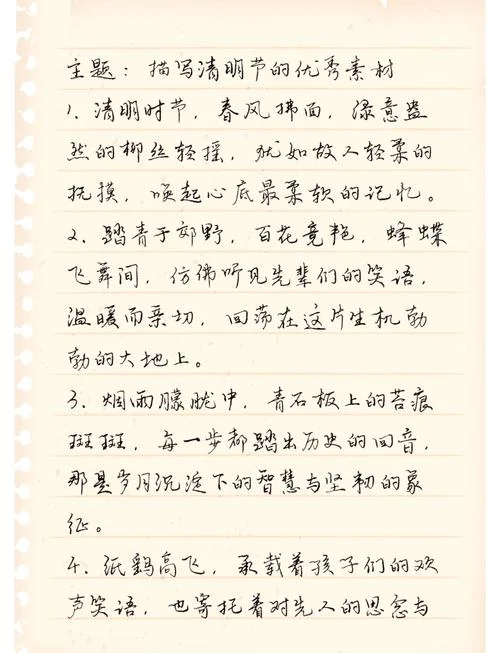 主题：描写清明节的优秀素材
1、清明时节，春风拂面，绿意盎
然的柳丝轻摇，犹如故人轻柔的
抚摸，唤起心底最柔软的记忆。
2、踏青于郊野，百花竞艳，蜂蝶
飞舞间，仿佛听见先辈们的笑语，
温暖而亲切，回荡在这片生机勃
勃的大地上。
3、烟雨朦胧中，青石板上的苔痕
斑斑，每一步都踏出历史的回音，
那是岁月沉淀下的智慧与坚韧的象
征。
4、纸鹞高飞，承载着孩子们的欢
声笑语，也寄托着对先人的思念与